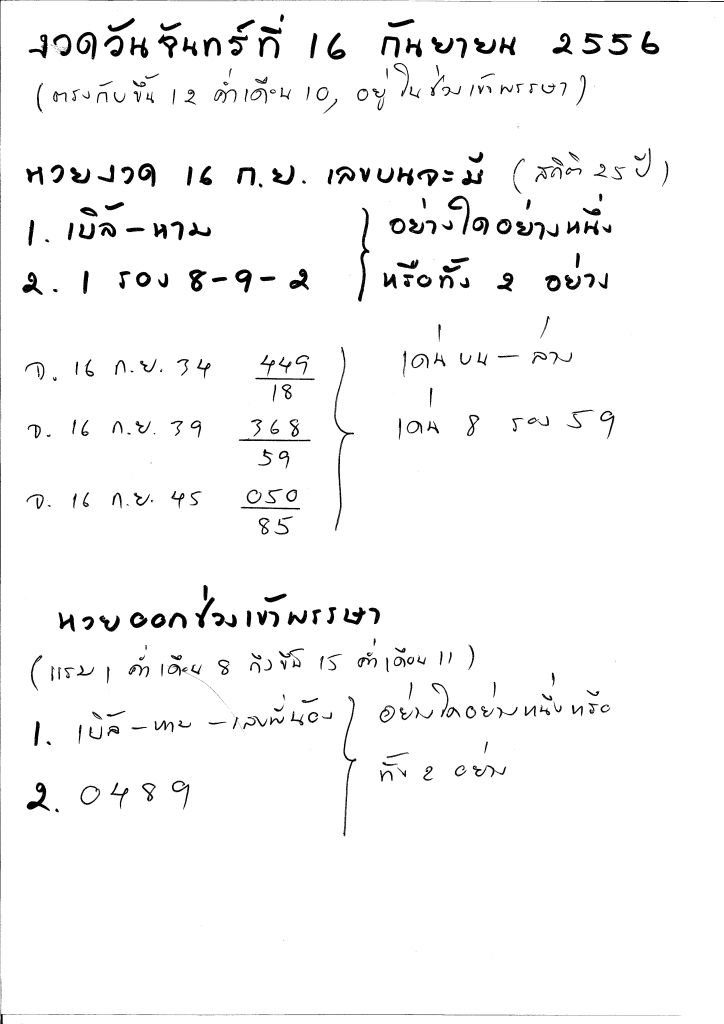 งวดวันจันทร์ที่ 16 กันยายน 2556
(ตรงกับขึ้น 12 ค่ำเดือน 10, อยู่ในช่วงเข้าพรรษา)
หวยงวด 16 ก.ย. เลขบนจะมี (สถิติ 25 ปี)
1. เบิ้ล-หาม
2. 1 รอง 8-9-2
อย่างใดอย่างหนึ่ง
หรือทั้ง 2 อย่าง
จ. 16 ก.ย. 34 449
18
จ. 16 ก.ย. 39 368
59
จ. 16 ก.ย. 45 050
85
เด่นบน-ล่าง
เด่น 8 รอง 59
หวยออกช่วงเข้าพรรษา
(แรม 1 ค่ำเดือน 8 ถึงขึ้น 15 ค่ำเดือน 11)
1. เบิ้ล-หาม-เลขพี่น้อง
2. 0489
อย่างใดอย่างหนึ่งหรือ
ทั้ง 2 อย่าง